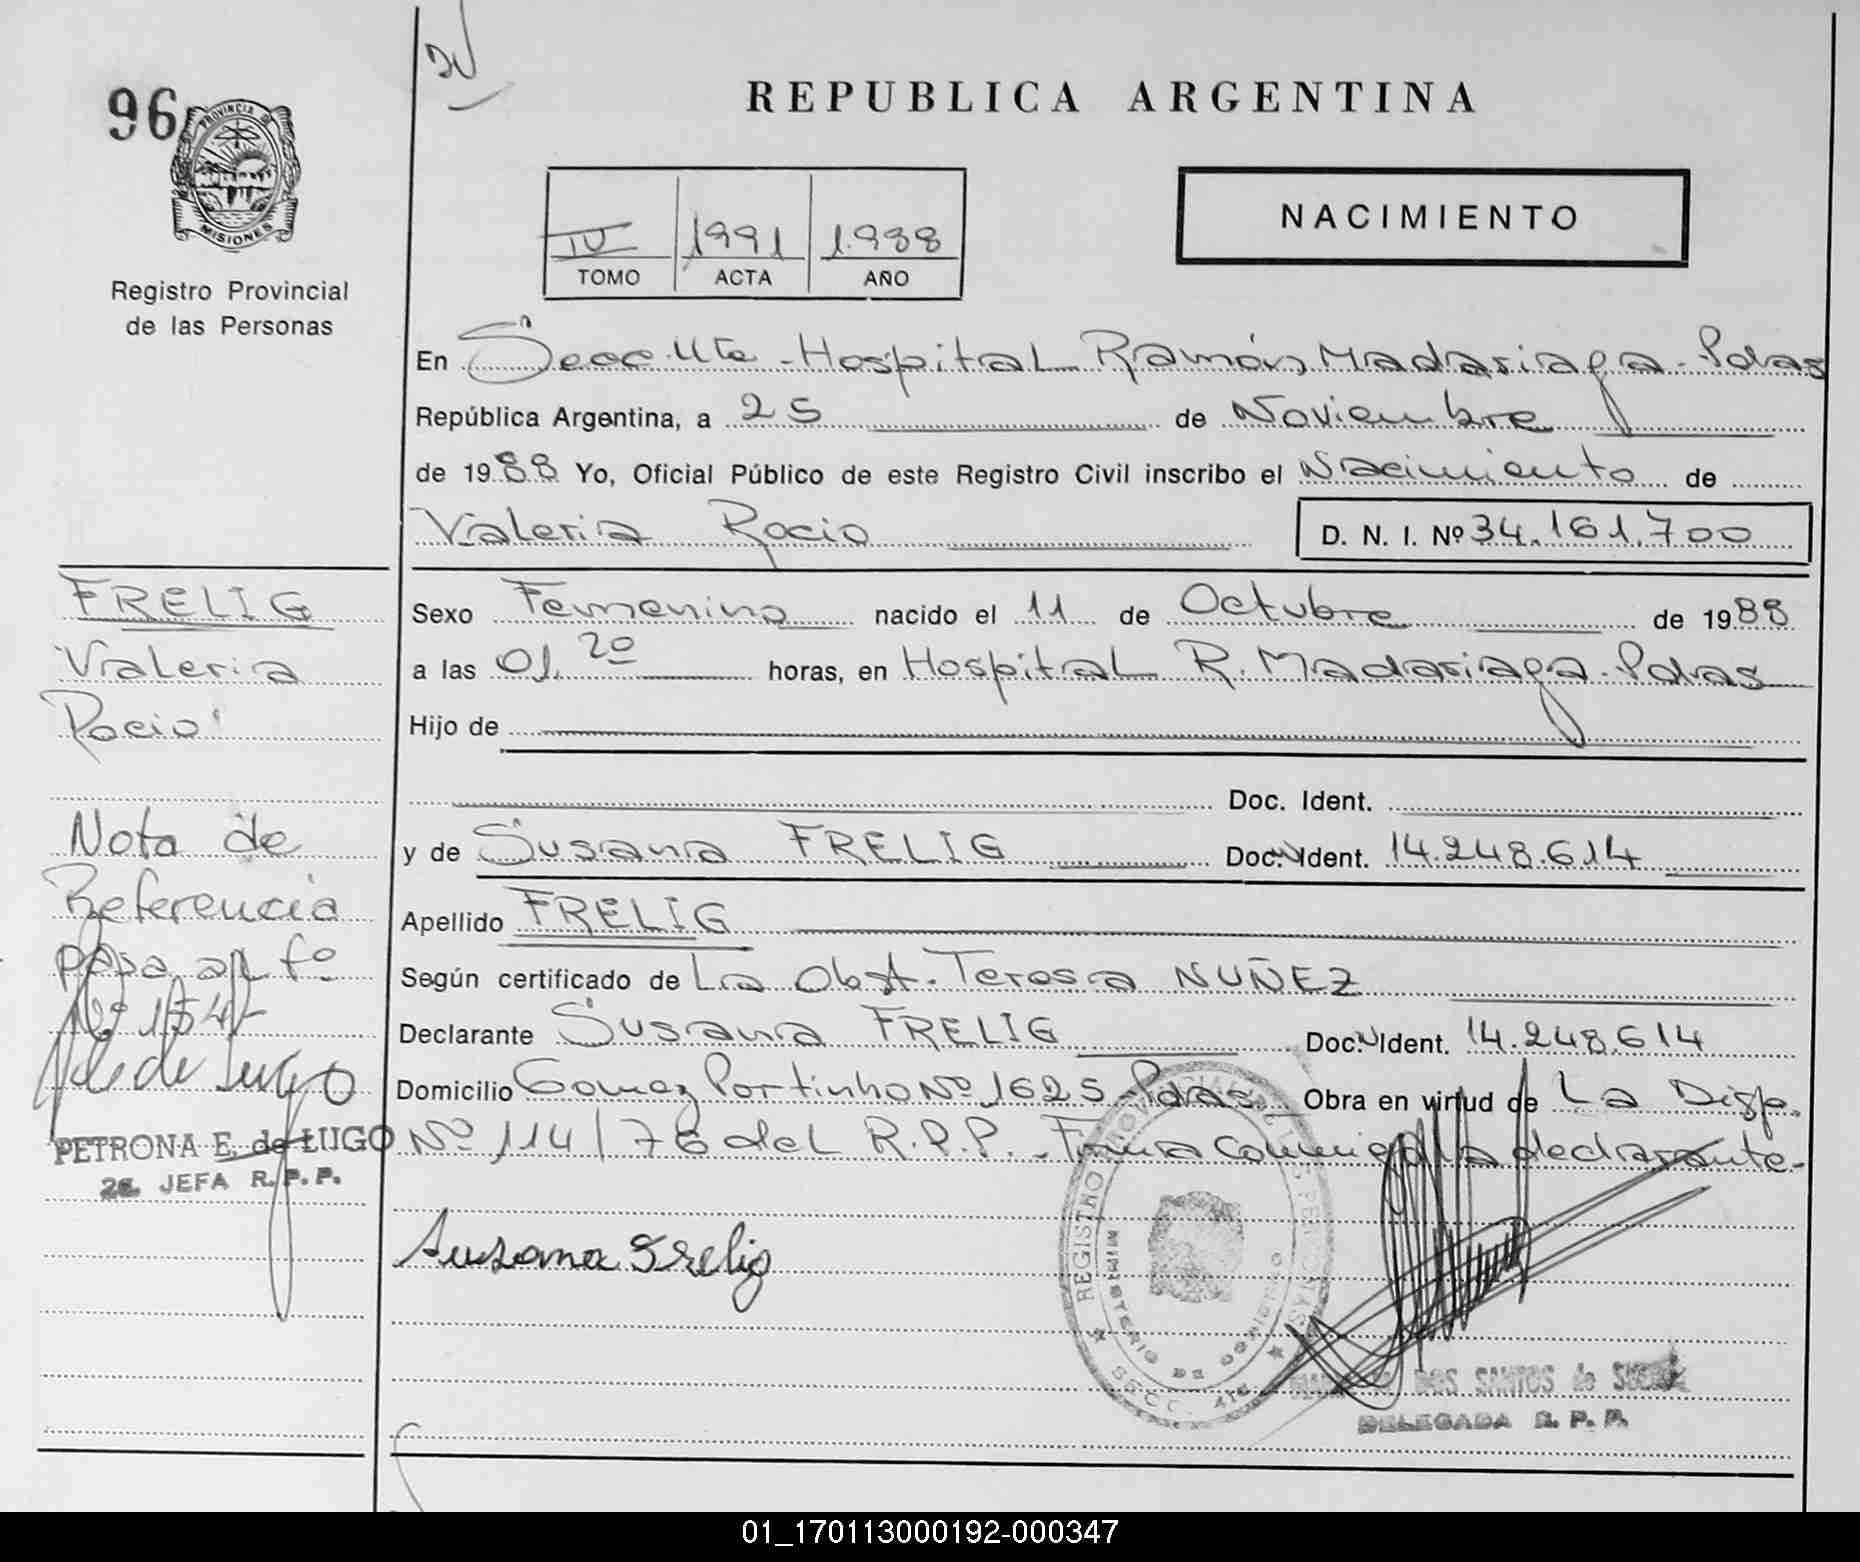 96
PROVINCIA DE
MISIONES
Registro Provincial
de las Personas
REPUBLICA ARGENTINA
NACIMIENTO
IV 1991 1.988
TOMO ACTA AÑO
En Secc. 4ta - Hospital Ramón Madariaga - Pdas
República Argentina, a 25 de Noviembre
de 1988 Yo, Oficial Público de este Registro Civil inscribo el Nacimiento de
Valeria Rocio D. N. I. Nº 34.161.700
Sexo Femenino nacido el 11 de Octubre de 1988
a las 01.20 horas, en Hospital R. Madariaga - Pdas
Hijo de
Doc. Ident.
y de Susana FRELIG Doc. Ident. 14.248.614
Apellido FRELIG
Según certificado de La Obst. Teresa NUÑEZ
Declarante Susana FRELIG Doc. Ident. 14.248.614
Domicilio Gomez Portinho Nº 1625 - Pdas Obra en virtud de La Disp.
Nº 114/76 del R.P.P. - Firma conmigo la declarante -
Susana Frelig
FRELIG
Valeria
Rocio
Nota de
Referencia
pasa al fº
Nº 154
de Lugo
PETRONA E. de LUGO
2a. JEFA R.P.P.
REGISTRO PROVINCIAL DE LAS PERSONAS
MINISTERIO DE GOBIERNO
SECC. 4ta
DOS SANTOS de
DELEGADA R. P. P.
01_170113000192-000347